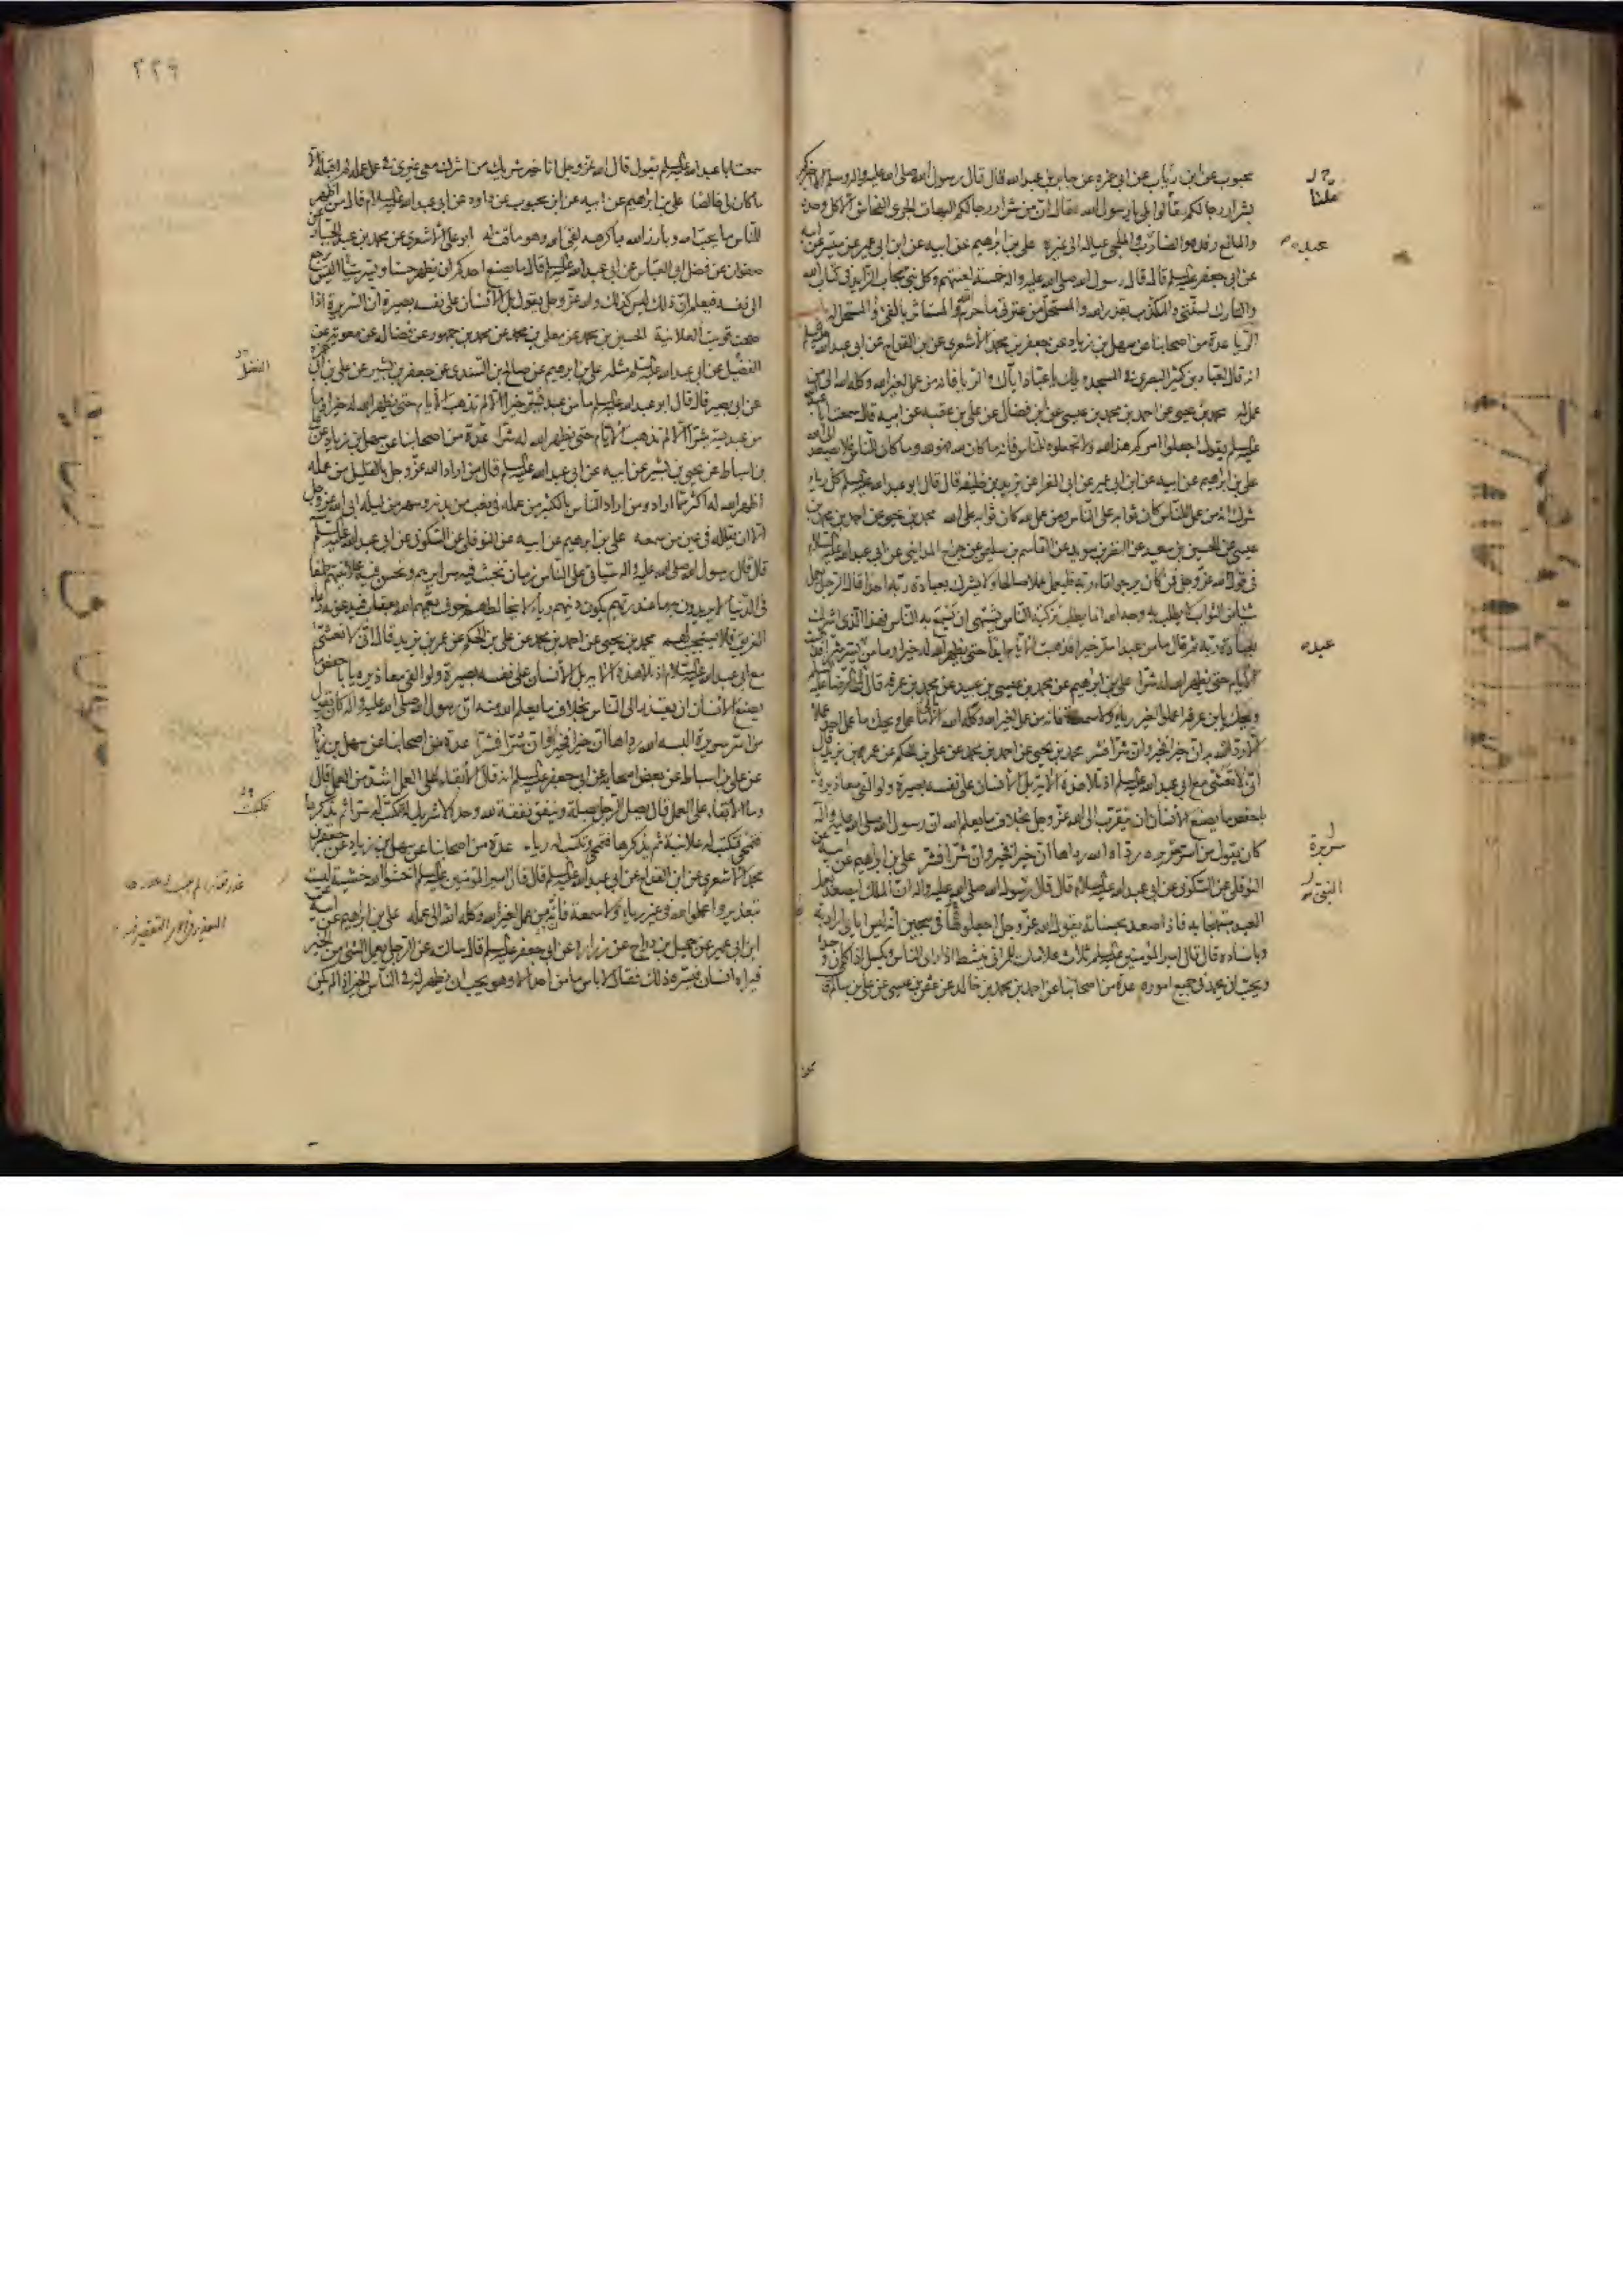 محبوب عن ابن رئاب عن ابي حمزه عن جابر بن عبد الله قال قال رسول الله صلى الله عليه واله وسلم الا اخبركم
بشرار رجالكم قالوا بلى يا رسول الله فقال ان من شرار رجالكم البهات الجرى الفحاش الاكل وحده
والمانع رفده والضارب عبده والملجى عياله الى غيره على بن ابراهيم عن ابيه عن ابن ابى عمير عن ميسر عن ابيه
عن ابى جعفر عليه السلم قال قال رسول الله صلى الله عليه واله خمسة لعنتهم وكل نبى مجاب الزايد فى كتاب الله
والتارك لسنتى والمكذب بقدر الله والمستحل من عترتى ما حرم الله والمستاثر بالفىء والمستحل له باب
الريا عدة من اصحابنا عن سهل بن زياد عن جعفر بن محمد الاشعرى عن ابن القداح عن ابى عبد الله عليه السلم
انه قال لعباد بن كثير البصرى فى المسجد ويلك يا عباد اياك والريا فانه من عمل لغير الله وكله الله الى من
عمل له محمد بن يحيى عن احمد بن محمد بن عيسى عن ابن فضال عن على بن عقبه عن ابيه قال سمعت ابا عبد الله
عليه السلم يقول اجعلوا امركم هذا لله ولا تجعلوه للناس فانه ما كان لله فهو لله وما كان للناس فلا يصعد الى الله
على بن ابراهيم عن ابيه عن ابن ابى عمير عن ابى المغرا عن يزيد بن خليفه قال قال ابو عبد الله عليه السلم كل رياء
شرك انه من عمل للناس كان ثوابه على الناس ومن عمل لله كان ثوابه على الله محمد بن يحيى عن احمد بن محمد بن
عيسى عن الحسين بن سعيد عن النضر بن سويد عن القاسم بن سليمن عن جراح المدايني عن ابى عبد الله عليه السلام
فى قول الله عز وجل فمن كان يرجوا لقاء ربه فليعمل عملا صالحا ولا يشرك بعبادة ربه احدا قال الرجل يعمل
شيئا من الثواب لا يطلب به وجه الله انما يطلب تزكية الناس يشتهى ان يسمع به الناس فهذا الذى اشرك
بعبادة ربه ثم قال ما من عبد اسر خيرا فذهبت الايام ابدا حتى يظهر الله له خيرا وما من عبد يسر شرا فذهبت
الايام حتى يظهر الله له شرا على بن ابراهيم عن محمد بن عيسى بن عبيد عن محمد بن عرفه قال قال لى الرضا عليه السلم
ويحك يا بن عرفه اعملوا لغير رياء ولا سمعة فانه من عمل لغير الله وكله الله الى ما عمل ويحك ما عمل احد عملا
الا رداه الله به ان خيرا فخير وان شرا فشر محمد بن يحيى عن احمد بن محمد عن على بن الحكم عن عمر بن يزيد قال
انى لاتعشى مع ابى عبد الله عليه السلم اذ تلا هذه الاية بل الانسان على نفسه بصيرة ولو القى معاذيره يا
با حفص ما يصنع الانسان ان يتقرب الى الله عز وجل بخلاف ما يعلم الله ان رسول الله صلى الله عليه واله
كان يقول من اسر سريره رداه الله رداها ان خيرا فخير وان شرا فشر على بن ابراهيم عن ابيه عن
النوفلى عن السكونى عن ابى عبد الله عليه السلام قال قال رسول الله صلى الله عليه واله ان الملك ليصعد بعمل
العبد مبتهجا به فاذا صعد بحسناته يقول الله عز وجل اجعلوها فى سجين انه ليس اياى اراد به
وباسناده قال قال امير المؤمنين عليه السلم ثلاث علامات للمرائى ينشط اذا راى الناس ويكسل اذا كان وحده
ويحب ان يحمد فى جميع اموره عدة من اصحابنا عن احمد بن محمد بن خالد عن عثمن بن عيسى عن على بن سالم قال
عبده
عبده
سريرة
٢٢٩
سمعت ابا عبد الله عليه السلم يقول قال الله عز وجل انا خير شريك من اشرك معى غيرى فى عمل عمله لم اقبله الا
ما كان لى خالصا على بن ابراهيم عن ابيه عن ابن محبوب عن داود عن ابى عبد الله عليه السلام قال من اظهر
للناس ما يحب الله وبارز الله بما كرهه لقى الله وهو ماقت له ابو على الاشعرى عن محمد بن عبد الجبار عن
صفوان عن فضل ابى العباس عن ابى عبد الله عليه السلم قال ما يصنع احدكم ان يظهر حسنا ويسر سيئا اليس يرجع
الى نفسه فيعلم ان ذلك ليس كذلك والله عز وجل يقول بل الانسان على نفسه بصيرة ان السريرة اذا
صحت قويت العلانية الحسين بن محمد عن معلى بن محمد عن محمد بن جمهور عن فضاله عن معويه عن
الفضيل عن ابى عبد الله عليه السلم مثله على بن ابراهيم عن صالح بن السندى عن جعفر بن بشير عن على بن ابى حمزه
عن ابى بصير قال قال ابو عبد الله عليه السلم ما من عبد يسر خيرا الا لم تذهب الايام حتى يظهر الله له خيرا وما
من عبد يسر شرا الا لم تذهب الايام حتى يظهر الله له شرا عدة من اصحابنا عن سهل بن زياد عن على
بن اسباط عن يحيى بن بشير عن ابيه عن ابى عبد الله عليه السلم قال من اراد الله عز وجل بالقليل من عمله
اظهر الله له اكثر مما اراد ومن اراد الناس بالكثير من عمله فى تعب من بدنه وسهر من ليله ابى الله عز وجل
الا ان يقلله فى عين من سمعه على بن ابرهيم عن ابيه عن النوفلى عن السكونى عن ابى عبد الله عليه السلم
قال قال رسول الله صلى الله عليه واله سياتى على الناس زمان تخبث فيه سرايرهم وتحسن فيه علانيتهم طمعا
فى الدنيا لا يريدون به ما عند ربهم يكون دينهم رياء لا يخالطهم خوف يعمهم الله بعقاب فيدعونه دعاء
الغريق فلا يستجيب لهم محمد بن يحيى عن احمد بن محمد عن على بن الحكم عن عمر بن يزيد قال انى لاتعشى
مع ابى عبد الله عليه السلام اذ تلا هذه الاية بل الانسان على نفسه بصيرة ولو القى معاذيره يا با حفص ما
يصنع الانسان ان يعتذر الى الناس بخلاف ما يعلم الله منه ان رسول الله صلى الله عليه واله كان يقول
من اسر سريرة البسه الله رداها ان خيرا فخير وان شرا فشر عدة من اصحابنا عن سهل بن زياد
عن على بن اسباط عن بعض اصحابه عن ابى جعفر عليه السلم انه قال الابقاء على العمل اشد من العمل قال
وما الابقاء على العمل قال يصل الرجل بصلة وينفق نفقة لله وحده لا شريك له فتكتب له سرا ثم يذكرها
فتمحى فتكتب له علانية ثم يذكرها فتمحى وتكتب له رياء عدة من اصحابنا عن سهل بن زياد عن جعفر بن
محمد الاشعرى عن ابن القداح عن ابى عبد الله عليه السلم قال قال امير المؤمنين عليه السلم اخشوا الله خشية ليست
بتعذير واعملوا لله فى غير رياء ولا سمعة فانه من عمل لغير الله وكله الله الى عمله على بن ابراهيم عن ابيه عن
ابن ابى عمير عن جميل بن دراج عن زراره عن ابى جعفر عليه السلم قال سالت عن الرجل يعمل الشىء من الخير
فيراه انسان فيسره ذلك فقال لا باس ما من احد الا وهو يحب ان يظهر له فى الناس الخير اذا لم يكن